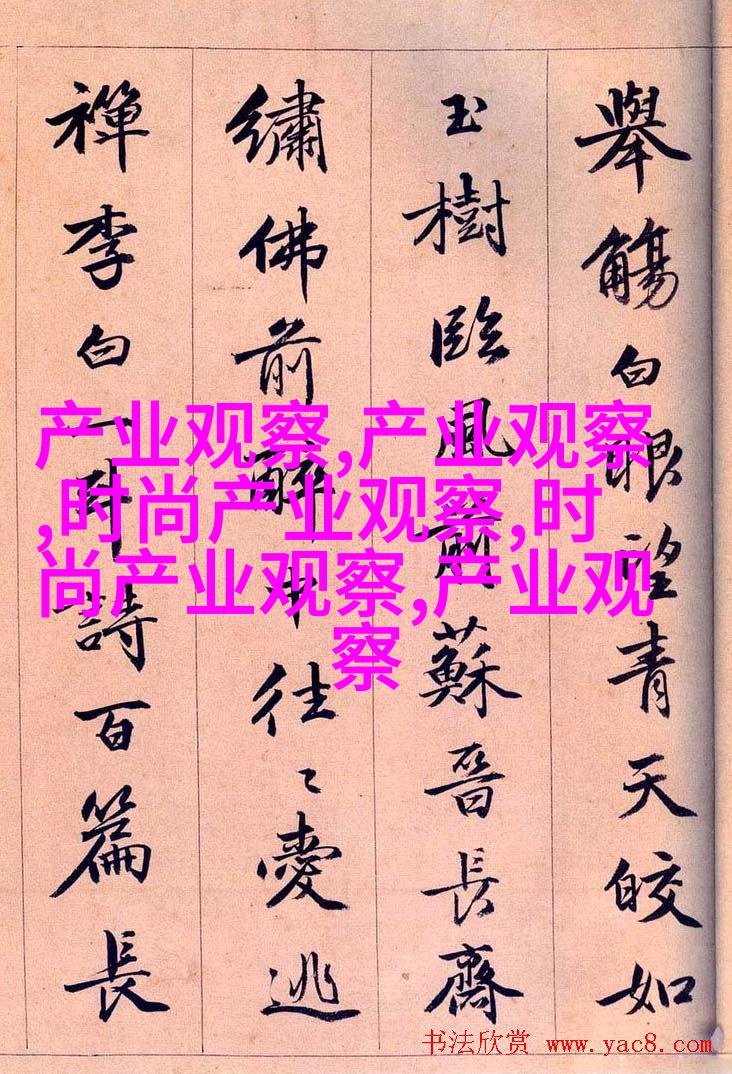 舉觴白眼望青天皎如
玉樹臨風前蘇晉長齋
繡佛前醉中往〻愛逃
禪李白一斗詩百篇長
产业观察,产业观察
,时尚产业观察,时
尚产业观察,产业观
察
书法欣赏 www.yac8.com